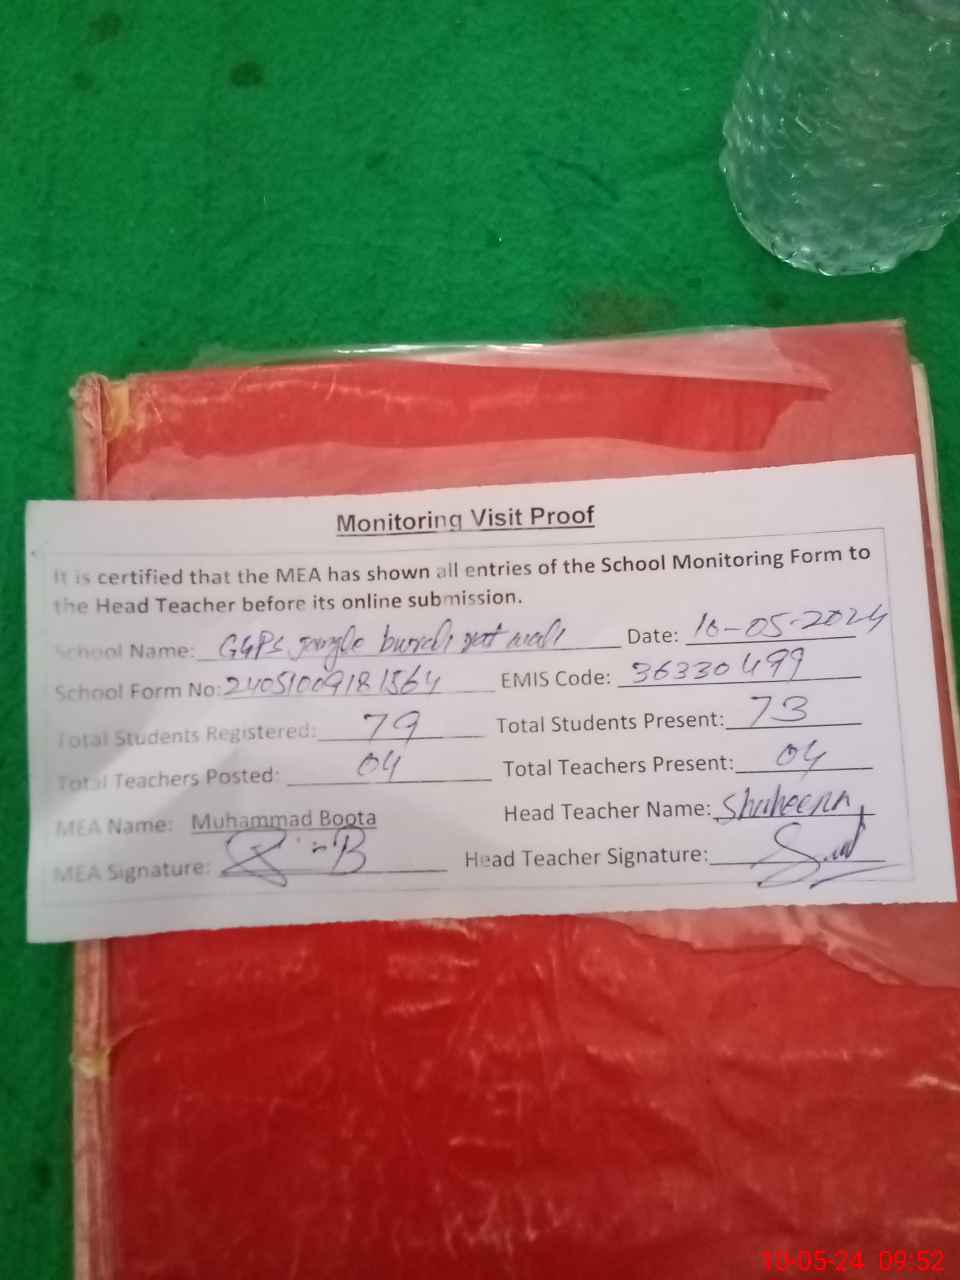 Monitoring Visit Proof
It is certified that the MEA has shown all entries of the School Monitoring Form to
the Head Teacher before its online submission.
School Name: GGPS Date: 10-05-2024
School Form No: 24051009181564 EMIS Code: 36330499
Total Students Registered: 79 Total Students Present: 73
Total Teachers Posted: 04 Total Teachers Present: 04
MEA Name: Muhammad Boota Head Teacher Name: Shaheena
MEA Signature: Head Teacher Signature:
10-05-24 09:52